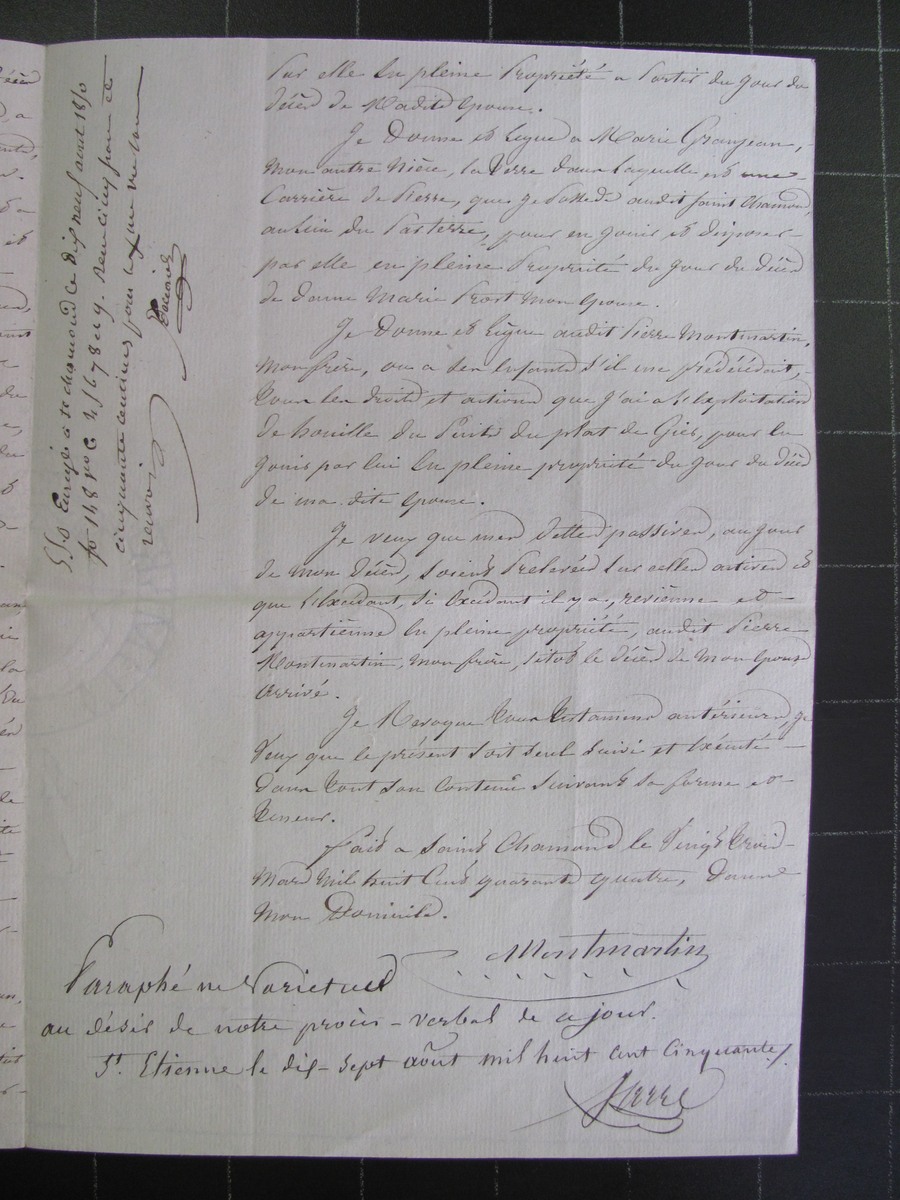 par elle en pleine Propriété a Partir du jour du
décès de Madite Epouse.
Je Donne et Legue a Marie Granjean,
Mon autre Nièce, la Terre dans laquelle est une
Carrière de Pierre, que je Possède audit Saint Chamond,
au lieu du Parterre, pour en jouir et disposer
par elle en pleine Propriété du jour du décès
de dame Marie Prost mon Epouse.
Je Donne et Lègue audit Pierre Montmartin,
Mon frère, ou a ses Enfants s'il me prédécédait,
tous les droits et actions que j'ai a l'exploitation
de houille du Puits du plat de Gier, pour en
jouir par lui En pleine propriété du jour du décès
de ma dite Epouse.
Je veux que mes dettes passives, au jour
de mon Décès, soient Prelevées sur celles actives et
que l'Excédant, si Excédant il y a, revienne et
appartienne En pleine propriété, audit Pierre
Montmartin, mon frère, sitot le décès de Mon Epouse
arrivé.
Je Revoque tous testamens antérieurs, je
Veux que le présent soit seul suivi et Exécuté
dans tout son Contenu suivant sa forme et
teneur.
Fait a Saint Chamond le Vingt trois
Mars Mil huit Cent quarante quatre, dans
Mon Domicile.
Montmartin
Paraphé ne Varietur
au désir de notre procès-verbal de ce jour.
St. Etienne le dix-sept août mil huit cent cinquante
Enregé à St chamond le dix neuf aout 1850
fo 148 Vo C 4, 5, 6, 7, 8 et 9. Reçu cinq francs
cinquante centimes